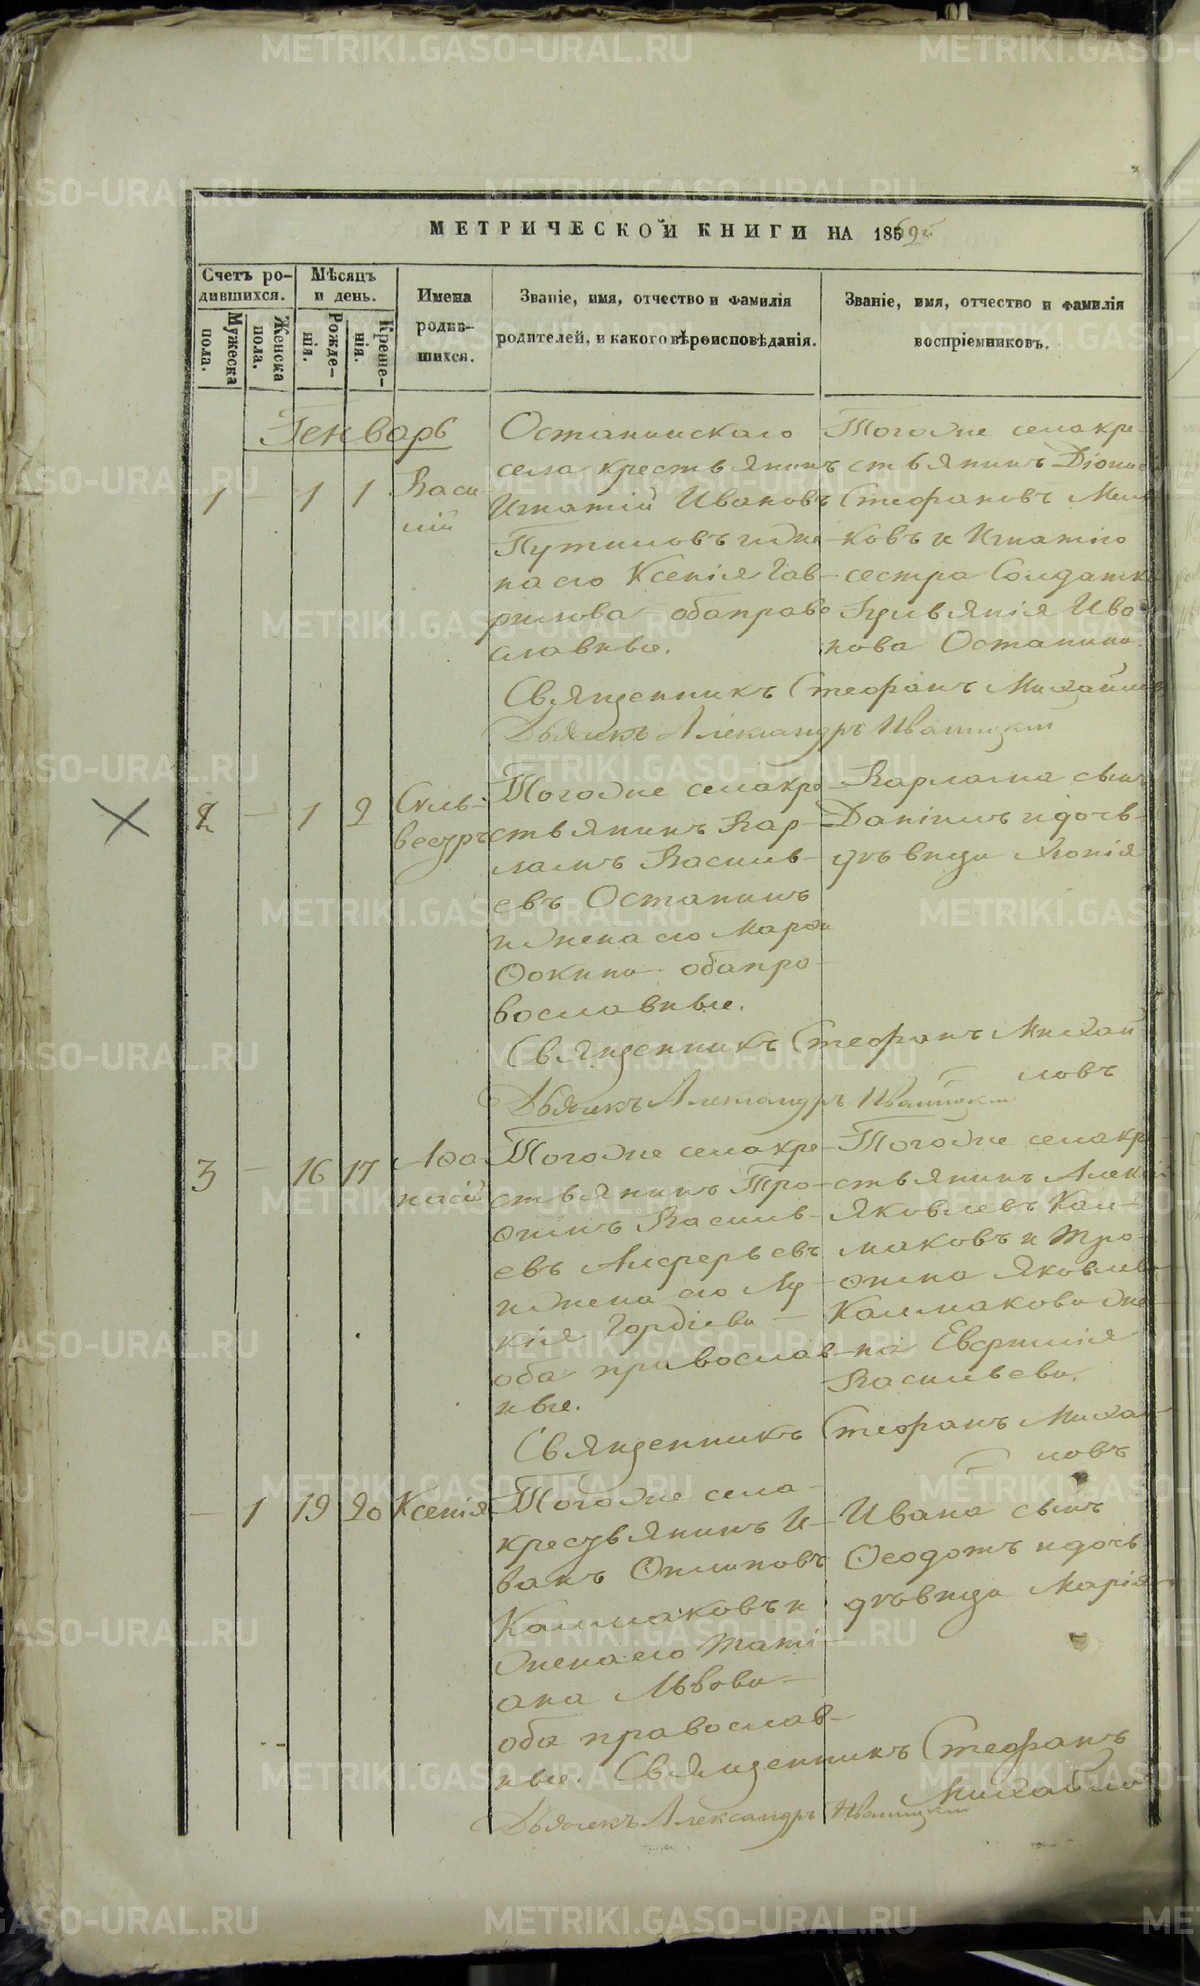 МЕТРИЧЕСКОЙ КНИГИ НА 1859й
Счетъ ро-
дившихся.
Мѣсяцъ
и день.
Имена
родив-
шихся.
Званіе, имя, отчество и фамилія
родителей, и какого вѣроисповѣданія.
Званіе, имя, отчество и фамилія
воспріемниковъ.
Мужеска
пола.
Женска
пола.
Рожде-
нія.
Креще-
нія.
Генварь
1 - 1 1
Васи
лій
Останинскаго
села крестьянинъ
Игнатій Ивановъ
Путиловъ и же
на его Ксенія Гав-
рилова обаправо
славные.
Тогоже села кре-
стьянинъ Діонисі
Стефановъ
ковъ и Игнатія
сестра Солдатка
Иульянія Ива
нова Останина.
Священникъ Стефанъ Михайлов
Дьячекъ Александръ Иваницкій
2 - 1 2
Силь-
вестръ
Тогоже села кре
стьянинъ Вар-
лаамъ Василь-
евъ Останинъ
и жена его Марѳа
Ѳокина обапра-
вославные.
Варлама сынъ
Даніилъ и дочь-
дѣвица
Священникъ Стефанъ Михай
ловъ
Дьячекъ Александръ Иваницкій
3 - 16 17
Аѳа
насій
Тогоже села кре-
стьянинъ Тро-
ѳимъ Василь-
евъ Алферьевъ
и жена его Лу-
кія Гордіева -
оба православ-
ные.
Тогоже села кре-
стьянинъ Алексѣ
Яковлевъ Кал-
маковъ и Тро-
ѳима Яковлева
Калмакова же-
на Евфимія
Васильева.
Священникъ Стефанъ Михай
ловъ
- 1 19 20
Ксенія
Тогоже села-
крестьянинъ И-
ванъ Ѳилиповъ
Калмаковъ и
жена его Таті-
ана Львова -
оба православ-
ные.
Ивана сынъ
Ѳеодотъ и дочь
дѣвица Марія
Священникъ Стефанъ
Михайлов
Дьячекъ Александръ Иваницкій
METRIKI.GASO-URAL.RU